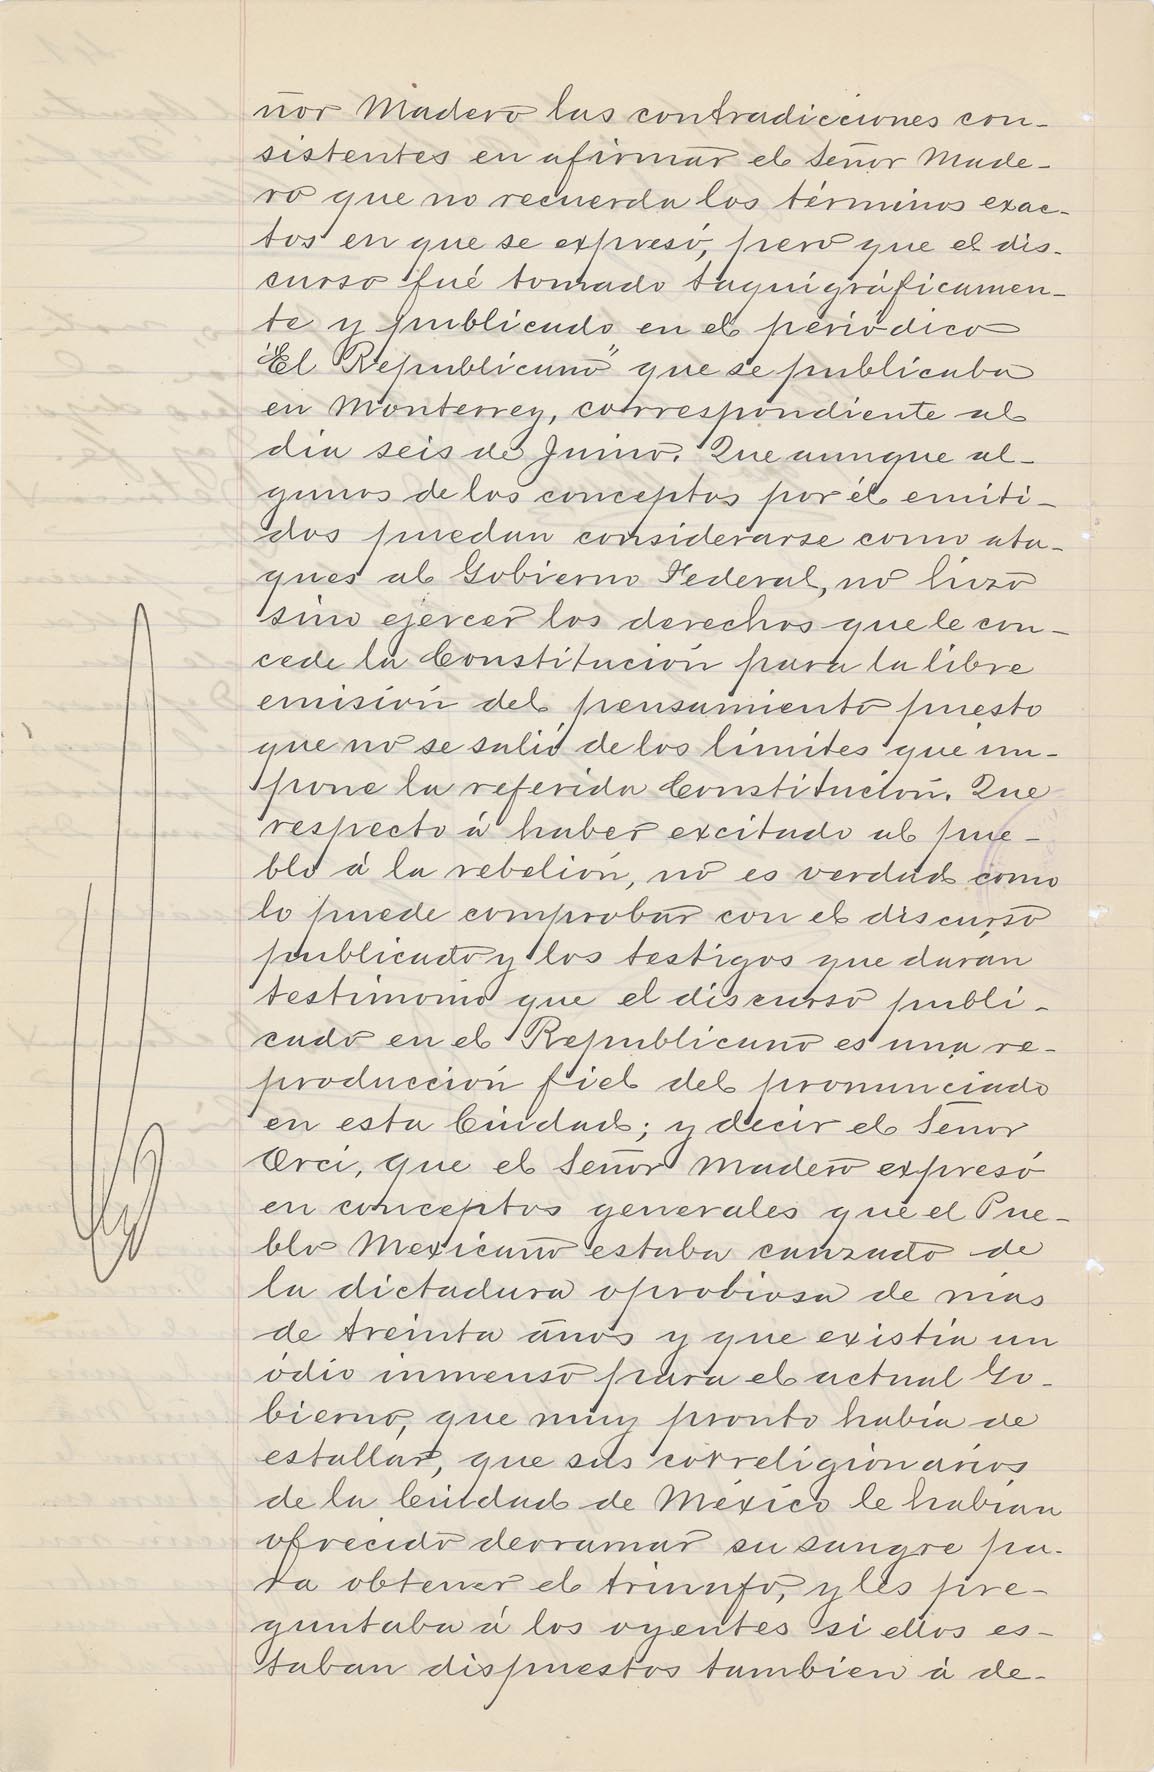 ñor Madero las contradicciones con-
sistentes en afirmar el Señor Made-
ro que no recuerda los términos exac-
tos en que se expresó, pero que el dis-
curso fué tomado taquigráficamen-
te y publicado en el periódico
"El Republicano" que se publicaba
en Monterrey, correspondiente al
dia seis de Junio. Que aunque al-
gunos de los conceptos por él emiti-
dos puedan considerarse como ata-
ques al Gobierno Federal, no hizo
sino ejercer los derechos que le con-
cede la Constitución para la libre
emisión del pensamiento puesto
que no se salió de los límites que im-
pone la referida Constitución. Que
respecto á haber excitado al pue-
blo á la rebelión, no es verdad como
lo puede comprobar con el discurso
publicado y los testigos que darán
testimonio que el discurso publi-
cado en el Republicano es una re-
producción fiel del pronunciado
en esta Ciudad; y decir el Señor
Orci, que el Señor Madero expresó
en conceptos generales que el Pue-
blo Mexicano estaba canzado de
la dictadura oprobiosa de más
de treinta años y que existía un
ódio inmenso para el actual Go-
bierno, que muy pronto había de
estallar, que sus correligionarios
de la Ciudad de México le habían
ofrecido derramar su sangre pa-
ra obtener el triunfo, y les pre-
guntaba á los oyentes si ellos es-
taban dispuestos tambien á de-